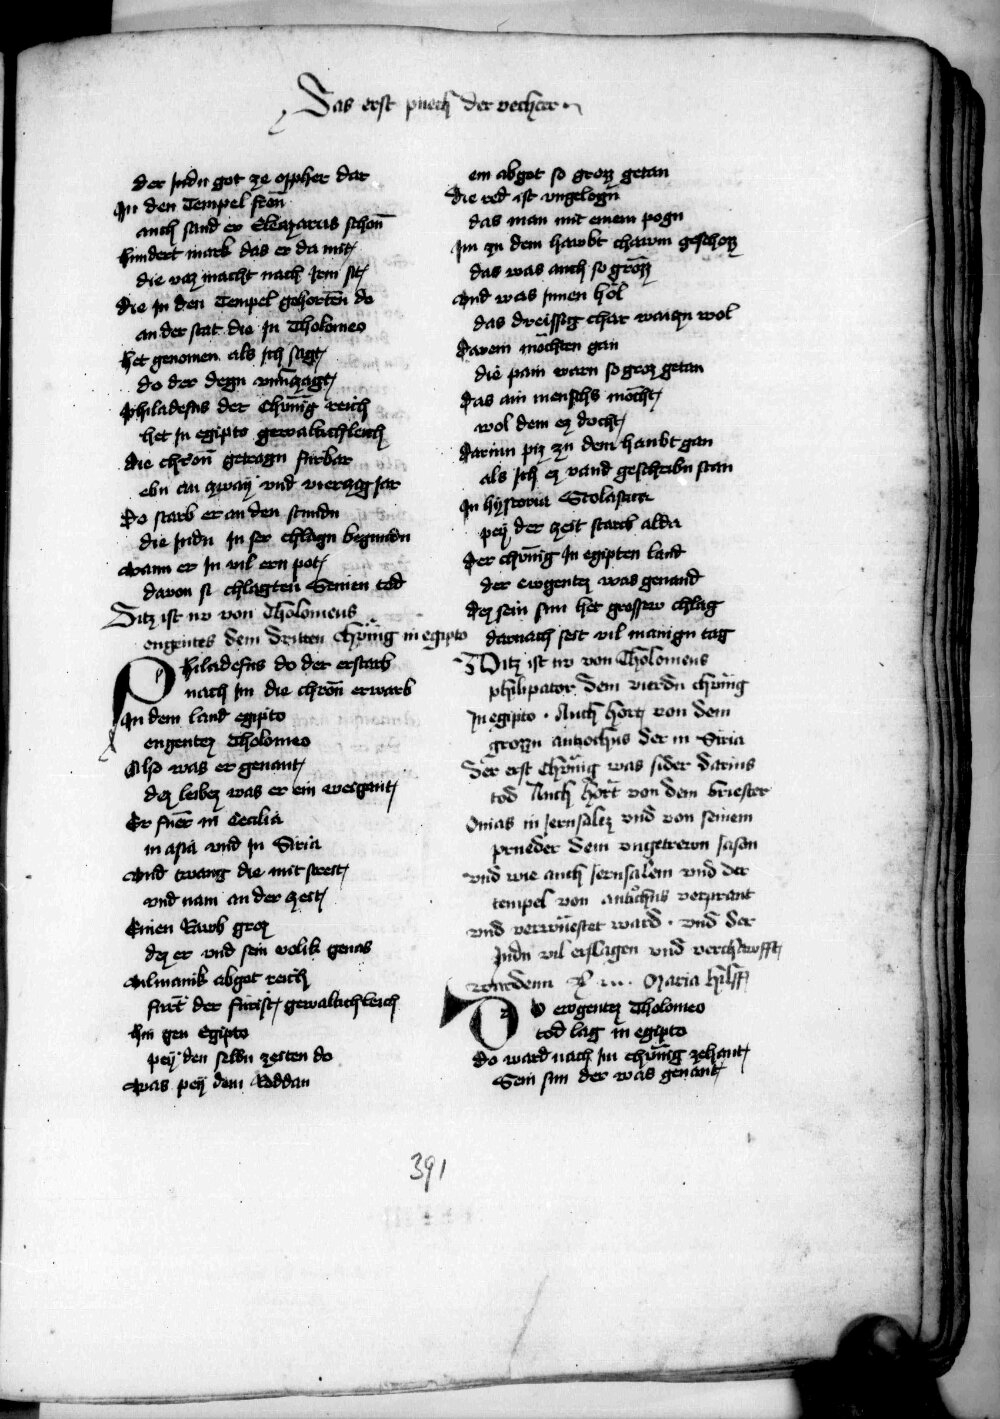 Das erst puech der vechter
der Judn got ze oppher dar
In den Tempel schon
auch sand er Eleazarus schon
hundert mark das er da mit
die vaz macht nach Irm sit
die In den Tempel gehortn do
an der stat die In Tholomeo
het genomen als Ich sagt
do der degn vnuerzagt
philadefus der Chunig reich
het In egipto gewaltichleich
die chron getragn furbar
ebn ain zway vnd vierczg Jar
Do starb er an den stundn
die Judn In ser chlagn begundn
wann er In vil ern pot
davon si chlagten Seinen tod
Ditz ist nv von Tholomeus
eugentes dem dritten Chunig in egipto
Philadefus do der erstarb
nach Im die chron erwarb
In dem land egipto
eugentez Tholomeo
Also was er genant
dez leibez was er ein weigant
Er fuer in Cecilia
in asia vnd In Siria
vnd twang die mit streit
vnd nam an der zeit
Einen Rawb groz
dez er vnd sein volik genas
vilmanik abgot reich
furt der furist gewaltichleich
hin gen Egipto
pey den selbn zeiten do
was pey dem Roddan
ein abgot so grozz getan
die red ist vngelogn
das man mit einem pogn
Im zu dem hawbt chawm geschozz
das was auch so grozz
vnd was Innen hol
das dreissig char waiczn wol
darein mochten gan
die pain warn so groz getan
das ain mensch mocht
wol dem ez docht
darinn piz zu dem haubt gan
als Ich ez vand geschribn stan
In hystoria Scolastica
pey der zeit starb alda
der chunig In egipten land
der ewgentez was genand
dez sein sun het grossew chlag
darnach seit vil manign tag
Ditz ist nv von Tholomeus
philipator dem vierdn chunig
In egipto . Auch hort von dem
grozzn antzochus der in Siria
Der erst Chunig was sider darius
tod Auch hort von dem briester
Onias in Jerusalez vnd von seinem
prueder dem vngetrewn Jason
vnd wie auch Jerusalem vnd der
tempel von antiochus verprant
vnd verwuestet ward . vnd der
Judn vil erslagen vnd verchawfft
wurdenn Maria hilff
Do ewgentez Tholomeo
tod lag in egipto
do ward nach Im chunig zehant
Sein sun der was genant
391